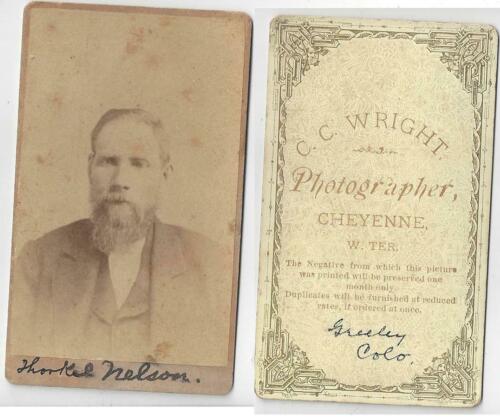 Thorkel Nelson.
C. C. WRIGHT.
Photographer,
CHEYENNE,
W. TER.
The Negative from which this picture
was printed will be preserved one
month only.
Duplicates will be furnished at reduced
rates, if ordered at once.
Greeley
Colo.